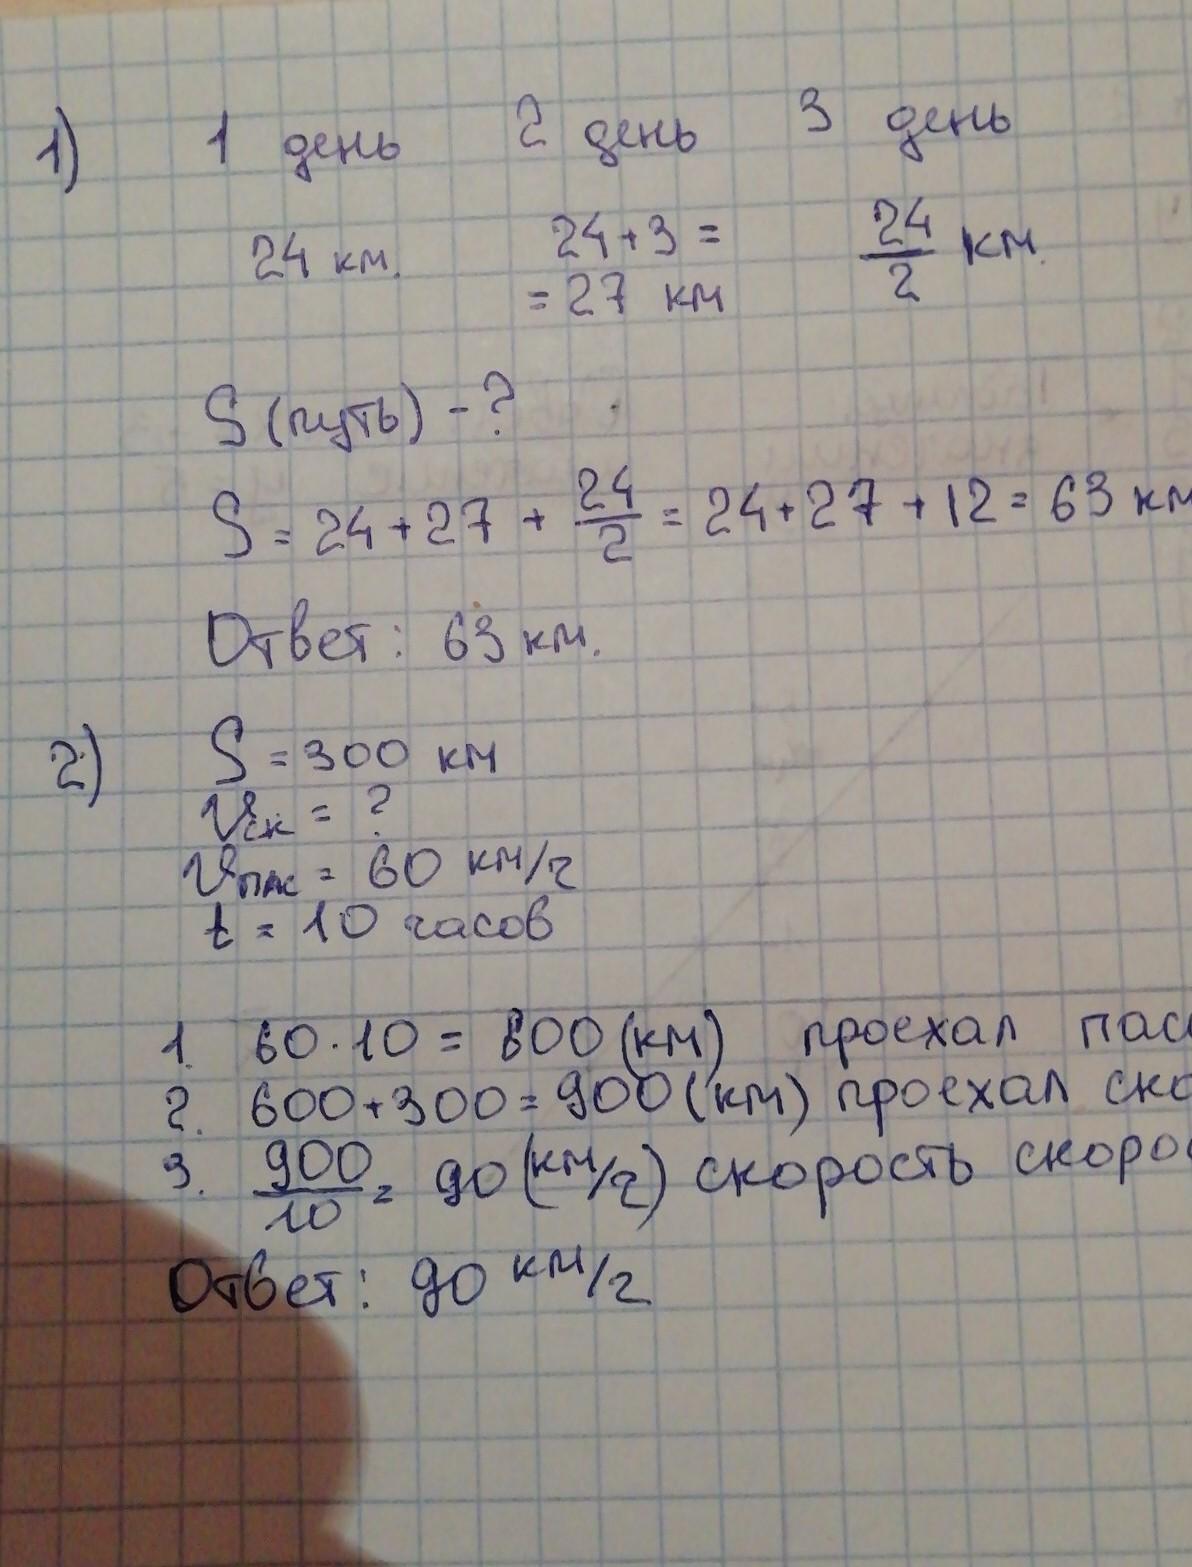 1) 1 день 2 день 3 день
24 км. 24+3= 24/2 км.
=27 км
S (путь) - ?
S = 24+27 + 24/2 = 24+27+12 = 63 км
Ответ: 63 км.
2) S = 300 км
Vск = ?
Vпас = 60 км/ч
t = 10 часов
1. 60·10 = 600 (км) проехал пасс
2. 600+300=900 (км) проехал ско
3. 900/10 = 90 (км/ч) скорость скоро
Ответ: 90 км/ч